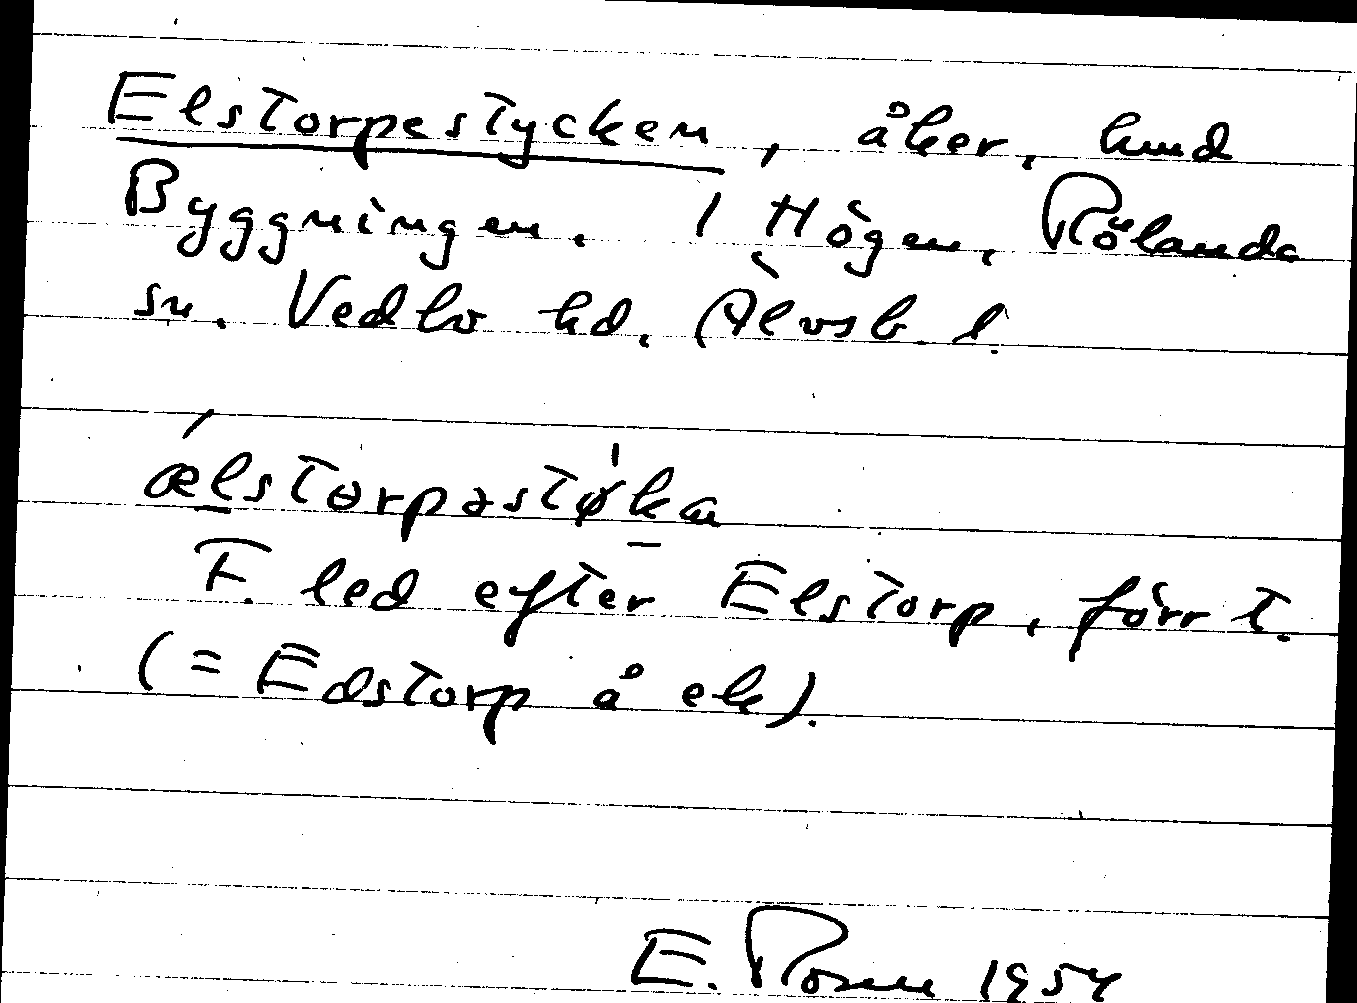 Elstorpestycken, åker, hmd
Byggningen. 1 Högen, Rölanda
sn. Vedbo hd. Älvsb. l.
ælstorpəstøka
F. led efter Elstorp, förr t.
(= Edstorp å ek).
E. Rosen 1954